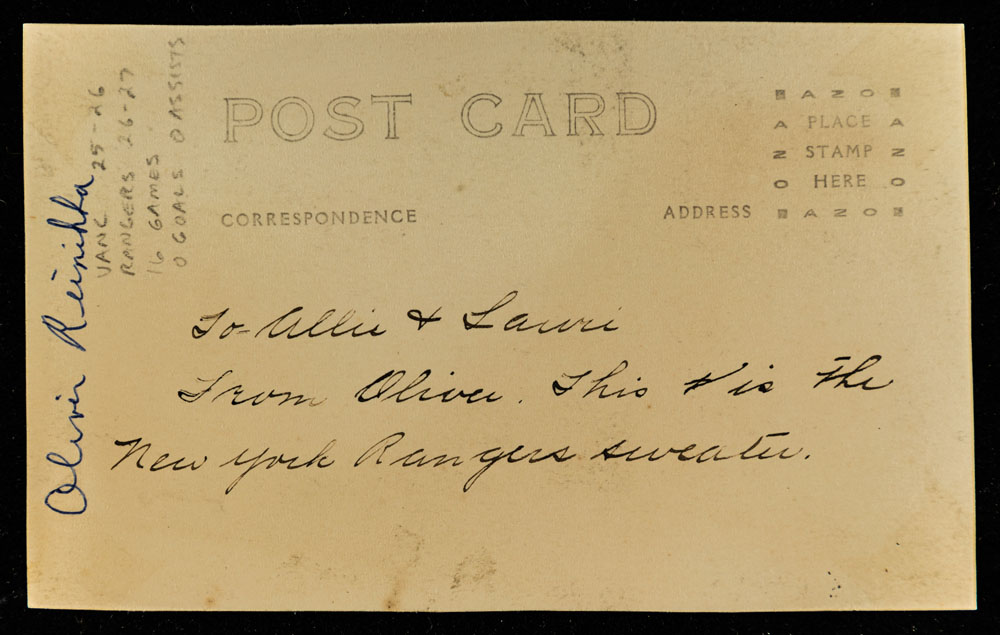 POST CARD
AZO
A PLACE A
Z STAMP Z
O HERE O
AZO
CORRESPONDENCE
ADDRESS
To-Allie & Lauri
From Oliver. This is the
New York Rangers sweater.
Oliver Reinikka
VANC 25-26
RANGERS 26-27
16 GAMES
0 GOALS 0 ASSISTS